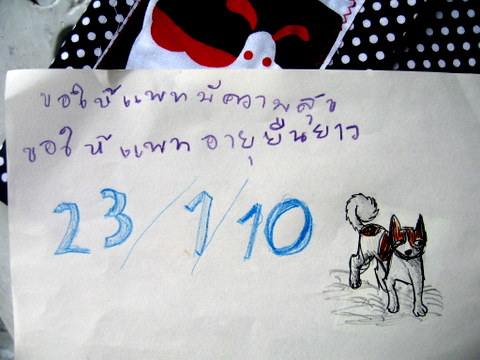 ขอให้แพทมีความสุข
ขอให้แพทอายุยืนยาว
23/1/10